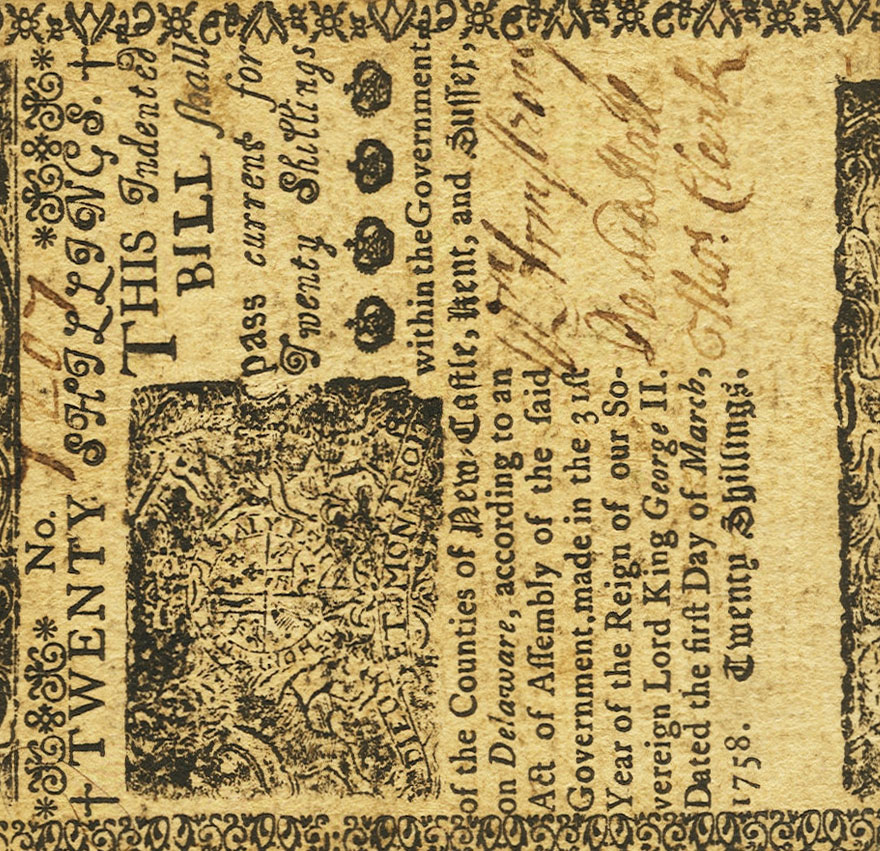 No. 7207
TWENTY SHILLINGS.
THIS Indented
BILL ſhall
pass current for
Twenty Shillings
within the Government
of the Counties of New-Caſtle, Kent, and Suſſex,
on Delaware, according to an
Act of Aſſembly of the ſaid
Government, made in the 31ſt
Year of the Reign of our So-
vereign Lord King George II.
Dated the firſt Day of March,
1758. Twenty Shillings.
DIEU ET MON DROIT
Wm Armſtrong
David Hall
Thos. Clark